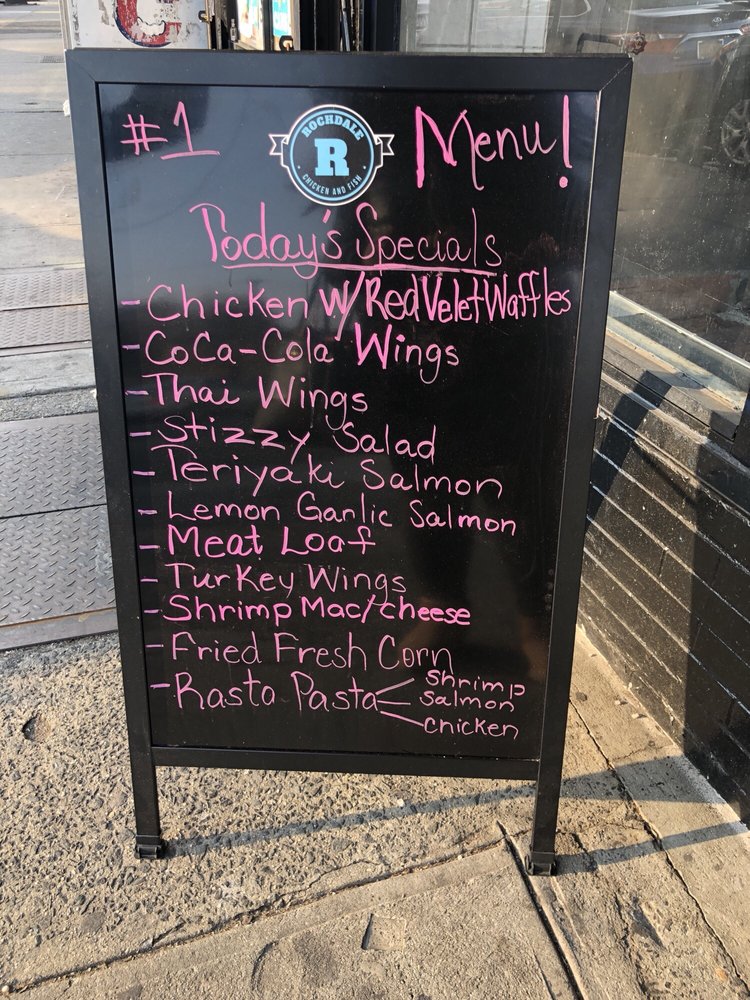 #1 ROCHDALE R CHICKEN AND FISH Menu!
Today's Specials
- Chicken w/ Red Velet Waffles
- CoCa-Cola Wings
- Thai Wings
- Stizzy Salad
- Teriyaki Salmon
- Lemon Garlic Salmon
- Meat Loaf
- Turkey Wings
- Shrimp Mac/cheese
- Fried Fresh Corn
- Rasta Pasta
Shrimp
Salmon
Chicken